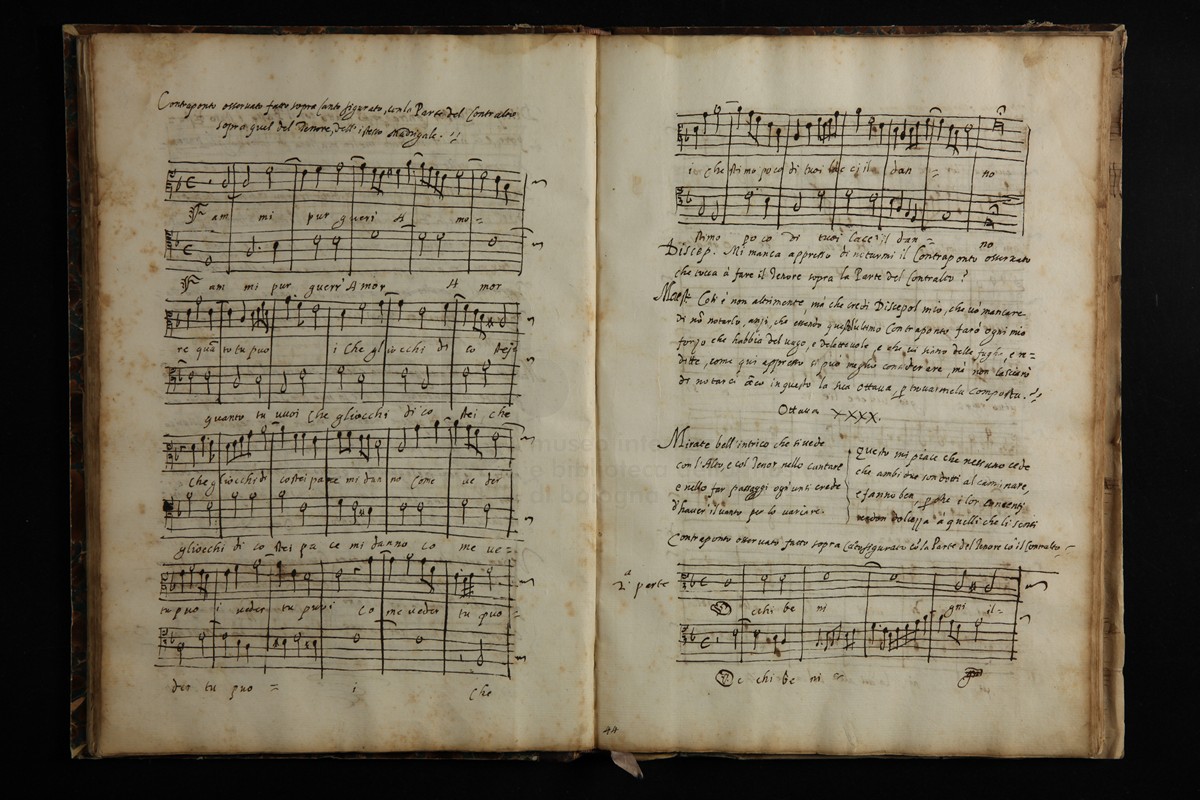 Contraponto osservato fatto sopra Canto figurato, con la Parte del Contralto
sopra quel del Tenore, dell'istesso Madrigale.
am mi pur gueri A mo =
am mi pur guerr' Amor A mor
re quãto tu puo i Che gl'occhi di co stei
quanto tu vuoi Che gliocchi di co stei che
che gliocchi di costei pace mi dan no Come ve der
gliocchi di co stei pa ce mi danno co me ve =
tu puo i veder tu puoi Co me veder tu puo =
der tu puo = i Che
i che stimo poco di tuoi il dan = no
stimo po co di tuoi lacci il dan = no
Discep. Mi manca appresso di notarmi il Contraponto osservato
che tocca à fare il Tenore sopra la Parte del Contralto?
Maest. Cosi è non altrimente, mà che credi Discepol mio, che vò mancare
di nõ notarlo, anzi, che essendo quest'ultimo Contraponto farò ogni mio
sforzo che habbia del vago, e delettevole, e che vi siano delle fughe, e re=
ditte, come qui appresso si può meglio considerare, mà non lasciarò
di notarci in questo la sua Ottava, composta.
Ottava XXXX.
Mirate bell'intrico che si vede
con l'Alto, e col Tenor nello cantare
e nello far passaggi ogn'un si crede
d'haver il vanto per lo variare.
Questo mi piace che nessuno cede
che ambi due son dotti al caminare,
e fanno ben, perche i lor concenti
rendon dolcezza à quelli che li senti
Contraponto osservato fatto sopra Cãto figurato cõ la Parte del Tenore cõ il Contralto
2.ª parte
cchi be ni gni il =
c chi be ni =
44
museo inte
e biblioteca
di bologna